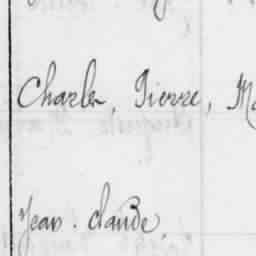 Charles, Pierre, Ma
Jean. Claude,